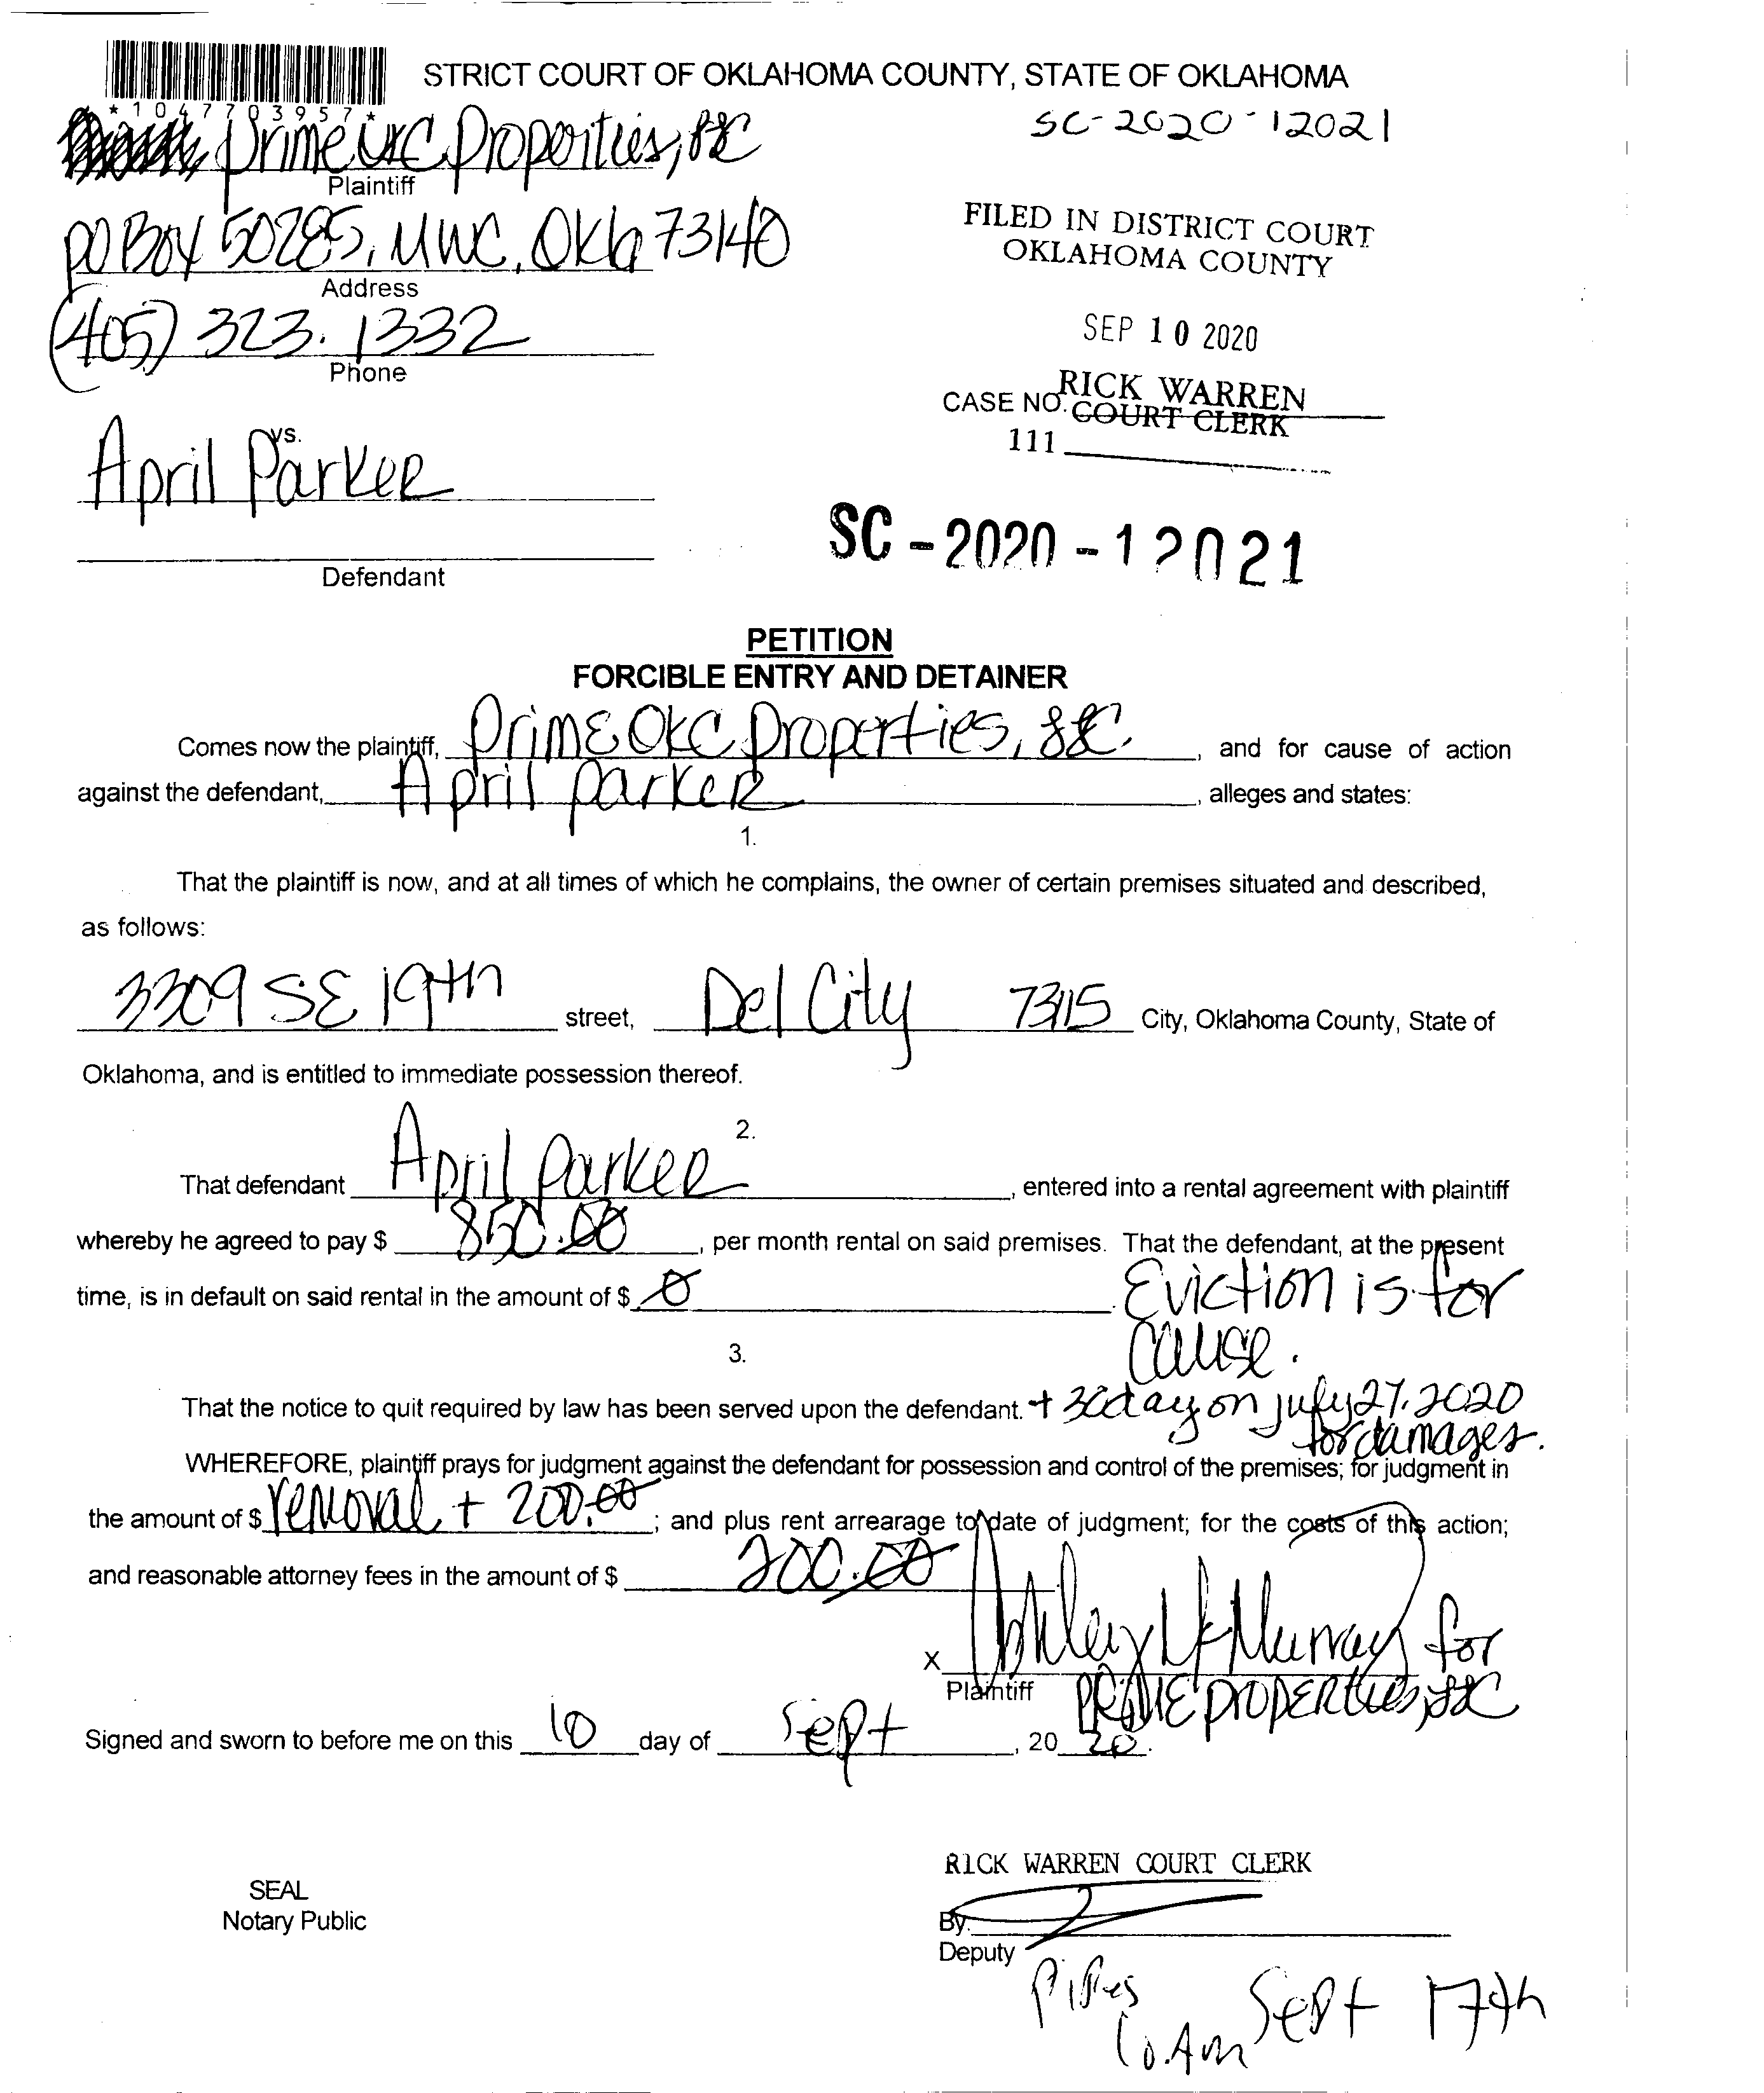 STRICT COURT OF OKLAHOMA COUNTY, STATE OF OKLAHOMA
*1047703957*
SC-2020-12021
Prime OKC Properties, LLC
Plaintiff
PO Box 50285, MWC, Okla 73140
Address
(405) 323.1332
Phone
FILED IN DISTRICT COURT
OKLAHOMA COUNTY
SEP 10 2020
RICK WARREN
CASE NO. COURT CLERK
111
vs.
April Parker
Defendant
SC-2020-12021
PETITION
FORCIBLE ENTRY AND DETAINER
Comes now the plaintiff, Prime OKC Properties, LLC. , and for cause of action
against the defendant, April Parker , alleges and states:
1.
That the plaintiff is now, and at all times of which he complains, the owner of certain premises situated and described,
as follows:
3309 SE 19th street, Del City 73115 City, Oklahoma County, State of
Oklahoma, and is entitled to immediate possession thereof.
2.
That defendant April Parker , entered into a rental agreement with plaintiff
whereby he agreed to pay $ 850.00 , per month rental on said premises. That the defendant, at the present
time, is in default on said rental in the amount of $ 0 . Eviction is for
cause.
3.
That the notice to quit required by law has been served upon the defendant. + 30 day on july 27, 2020
for damages.
WHEREFORE, plaintiff prays for judgment against the defendant for possession and control of the premises; for judgment in
the amount of $ removal + 200.00 ; and plus rent arrearage to date of judgment; for the costs of this action;
and reasonable attorney fees in the amount of $ 200.00
X Ashley McMurray for
Plaintiff PRIME PROPERties, LLC
Signed and sworn to before me on this 10 day of Sept , 20 20.
SEAL
Notary Public
RICK WARREN COURT CLERK
By.
Deputy
Sept 17th
10.Am